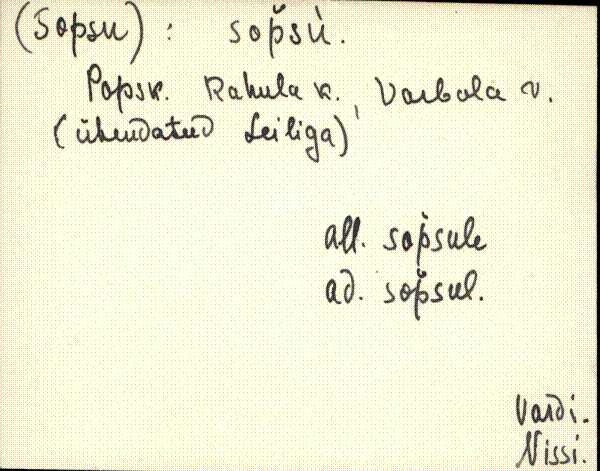 (Sopsu) : sop̆sù.
Popsk. Rahula k., Varbola v.
(ühendatud Leiliga)
all. sop̀sule
ad. sop̆sul.
Vardi.
Nissi.